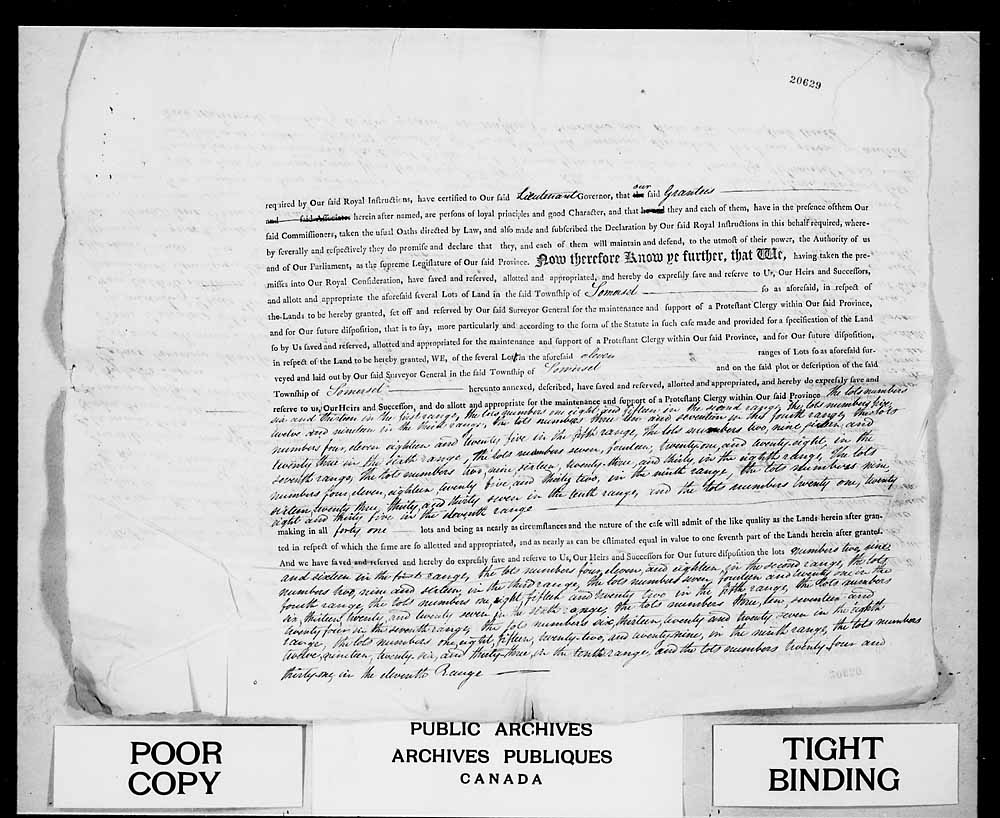 20629
required by Our said Royal Instructions, have certified to Our said Lieutenant Governor, that the our said Grantees
and said Associates herein after named, are persons of loyal principles and good Character, and that they and each of them, have in the presence ofthem Our
said Commissioners, taken the usual Oaths directed by Law, and also made and subscribed the Declaration by Our said Royal Instructions in this behalf required, where-
by severally and respectively they do promise and declare that they, and each of them will maintain and defend, to the utmost of their power, the Authority of us
and of Our Parliament, as the supreme Legislature of Our said Province. Now therefore Know ye further, that We, having taken the pre-
misses into Our Royal Consideration, have saved and reserved, allotted and appropriated, and hereby do expressly save and reserve to Us, Our Heirs and Successors,
and allott and appropriate the aforesaid several Lots of Land in the said Township of Somerset so as aforesaid, in respect of
the Lands to be hereby granted, set off and reserved by Our said Surveyor General for the maintenance and support of a Protestant Clergy within Our said Province,
and for Our future disposition, that is to say, more particularly and according to the form of the Statute in such case made and provided for a specification of the Land
so by Us saved and reserved, allotted and appropriated for the maintenance and support of a Protestant Clergy within Our said Province, and for Our future disposition,
in respect of the Land to be hereby granted, WE, of the several Lots in the aforesaid eleven ranges of Lots so as aforesaid sur-
veyed and laid out by Our said Surveyor General in the said Township of Somerset and on the said plot or description of the said
Township of Somerset hereunto annexed, described, have saved and reserved, allotted and appropriated, and hereby do expressly save and
reserve to us, Our Heirs and Successors, and do allott and appropriate for the maintenance and support of a Protestant Clergy within Our said Province the lots numbers
six and thirteen in the first range, the lots numbers one eight and fifteen in the second range, the lots numbers five
twelve and nineteen in the third range, the lots numbers three ten and seventeen in the fourth range, the lots
numbers four, eleven eighteen and twenty five in the fifth range, the lots numbers two, nine sixteen and
twenty three in the sixth range, the lots numbers seven, fourteen, twenty one, and twenty eight, in the
seventh range, the lots numbers two, nine, sixteen, twenty three, and thirty, in the eighth range, the lots
numbers four, eleven, eighteen, twenty five, and thirty two, in the ninth range, the lots numbers nine,
sixteen, twenty three, thirty, and thirty seven in the tenth range, and the lots numbers twenty one, twenty
eight and thirty five in the eleventh range
making in all forty one lots and being as nearly as circumstances and the nature of the case will admit of the like quality as the Lands herein after gran-
ted in respect of which the same are so allotted and appropriated, and as nearly as can be estimated equal in value to one seventh part of the Lands herein after granted.
And we have saved and reserved and hereby do expressly save and reserve to Us, Our Heirs and Successors for Our future disposition the lots numbers two, nine
and sixteen in the first range, the lots numbers four, eleven, and eighteen in the second range, the lots
numbers two, nine and sixteen, in the third range, the lots numbers seven, fourteen and twenty one in the
fourth range, the lots numbers one, eight, fifteen and twenty two in the fifth range, the lots numbers
six, thirteen, twenty, and twenty seven in the sixth range, the lots numbers three, ten, seventeen and
twenty four in the seventh range, the lots numbers six, thirteen, twenty and twenty seven in the eighth
range, the lots numbers one, eight, fifteen, twenty two, and twenty nine, in the ninth range, the lots numbers
twelve, nineteen, twenty six, and thirty three, in the tenth range, and the lots numbers twenty four and
thirty one, in the eleventh Range
POOR
COPY
PUBLIC ARCHIVES
ARCHIVES PUBLIQUES
CANADA
TIGHT
BINDING